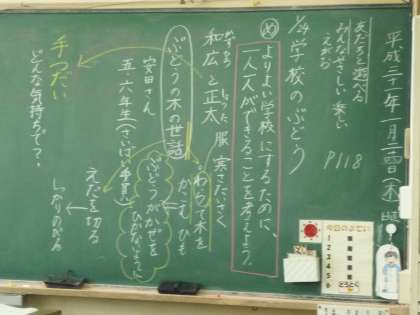 平成三十一年一月二十四日(木)
友だちと遊べる
みんなやさしい 楽しい
えがお
P118
1/24 学校のぶどう
め よりよい学校にするために、
一人一人ができることを考えよう。
かずひろ しょうた
和広と正太 服
ぶどうの木の世話
わらで木を
かこむ ひも
安田さん
五・六年生(さいばい委員)
ぶどうがかぜを
ひかないように
えだを切る
手つだい
どんな気持ちで?
今日のよてい
1
2
3
4
5
6
どうとく